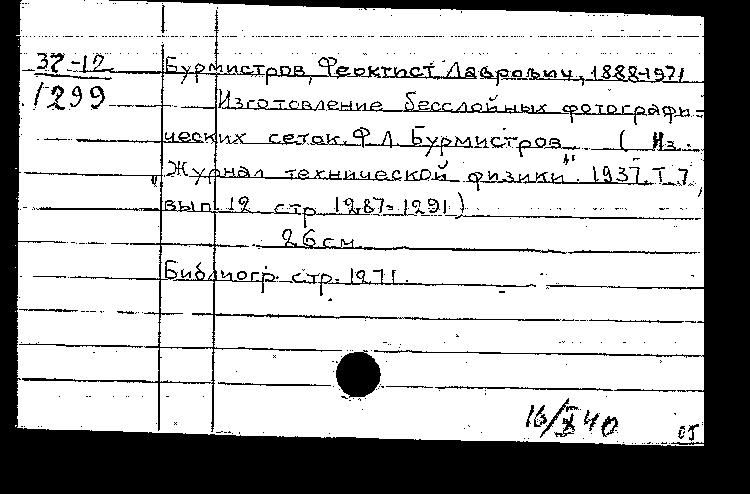 37-12
1299
Бурмистров, Феоктист Лаврович, 1888-1971
Изготовление бесслойных фотографи-
ческих сеток. Ф. Л. Бурмистров ( Из.
"Журнал технической физики". 1937, Т. 7,
вып. 12 стр. 1287-1291)
26 см.
Библиогр. стр. 1271.
16/X 40